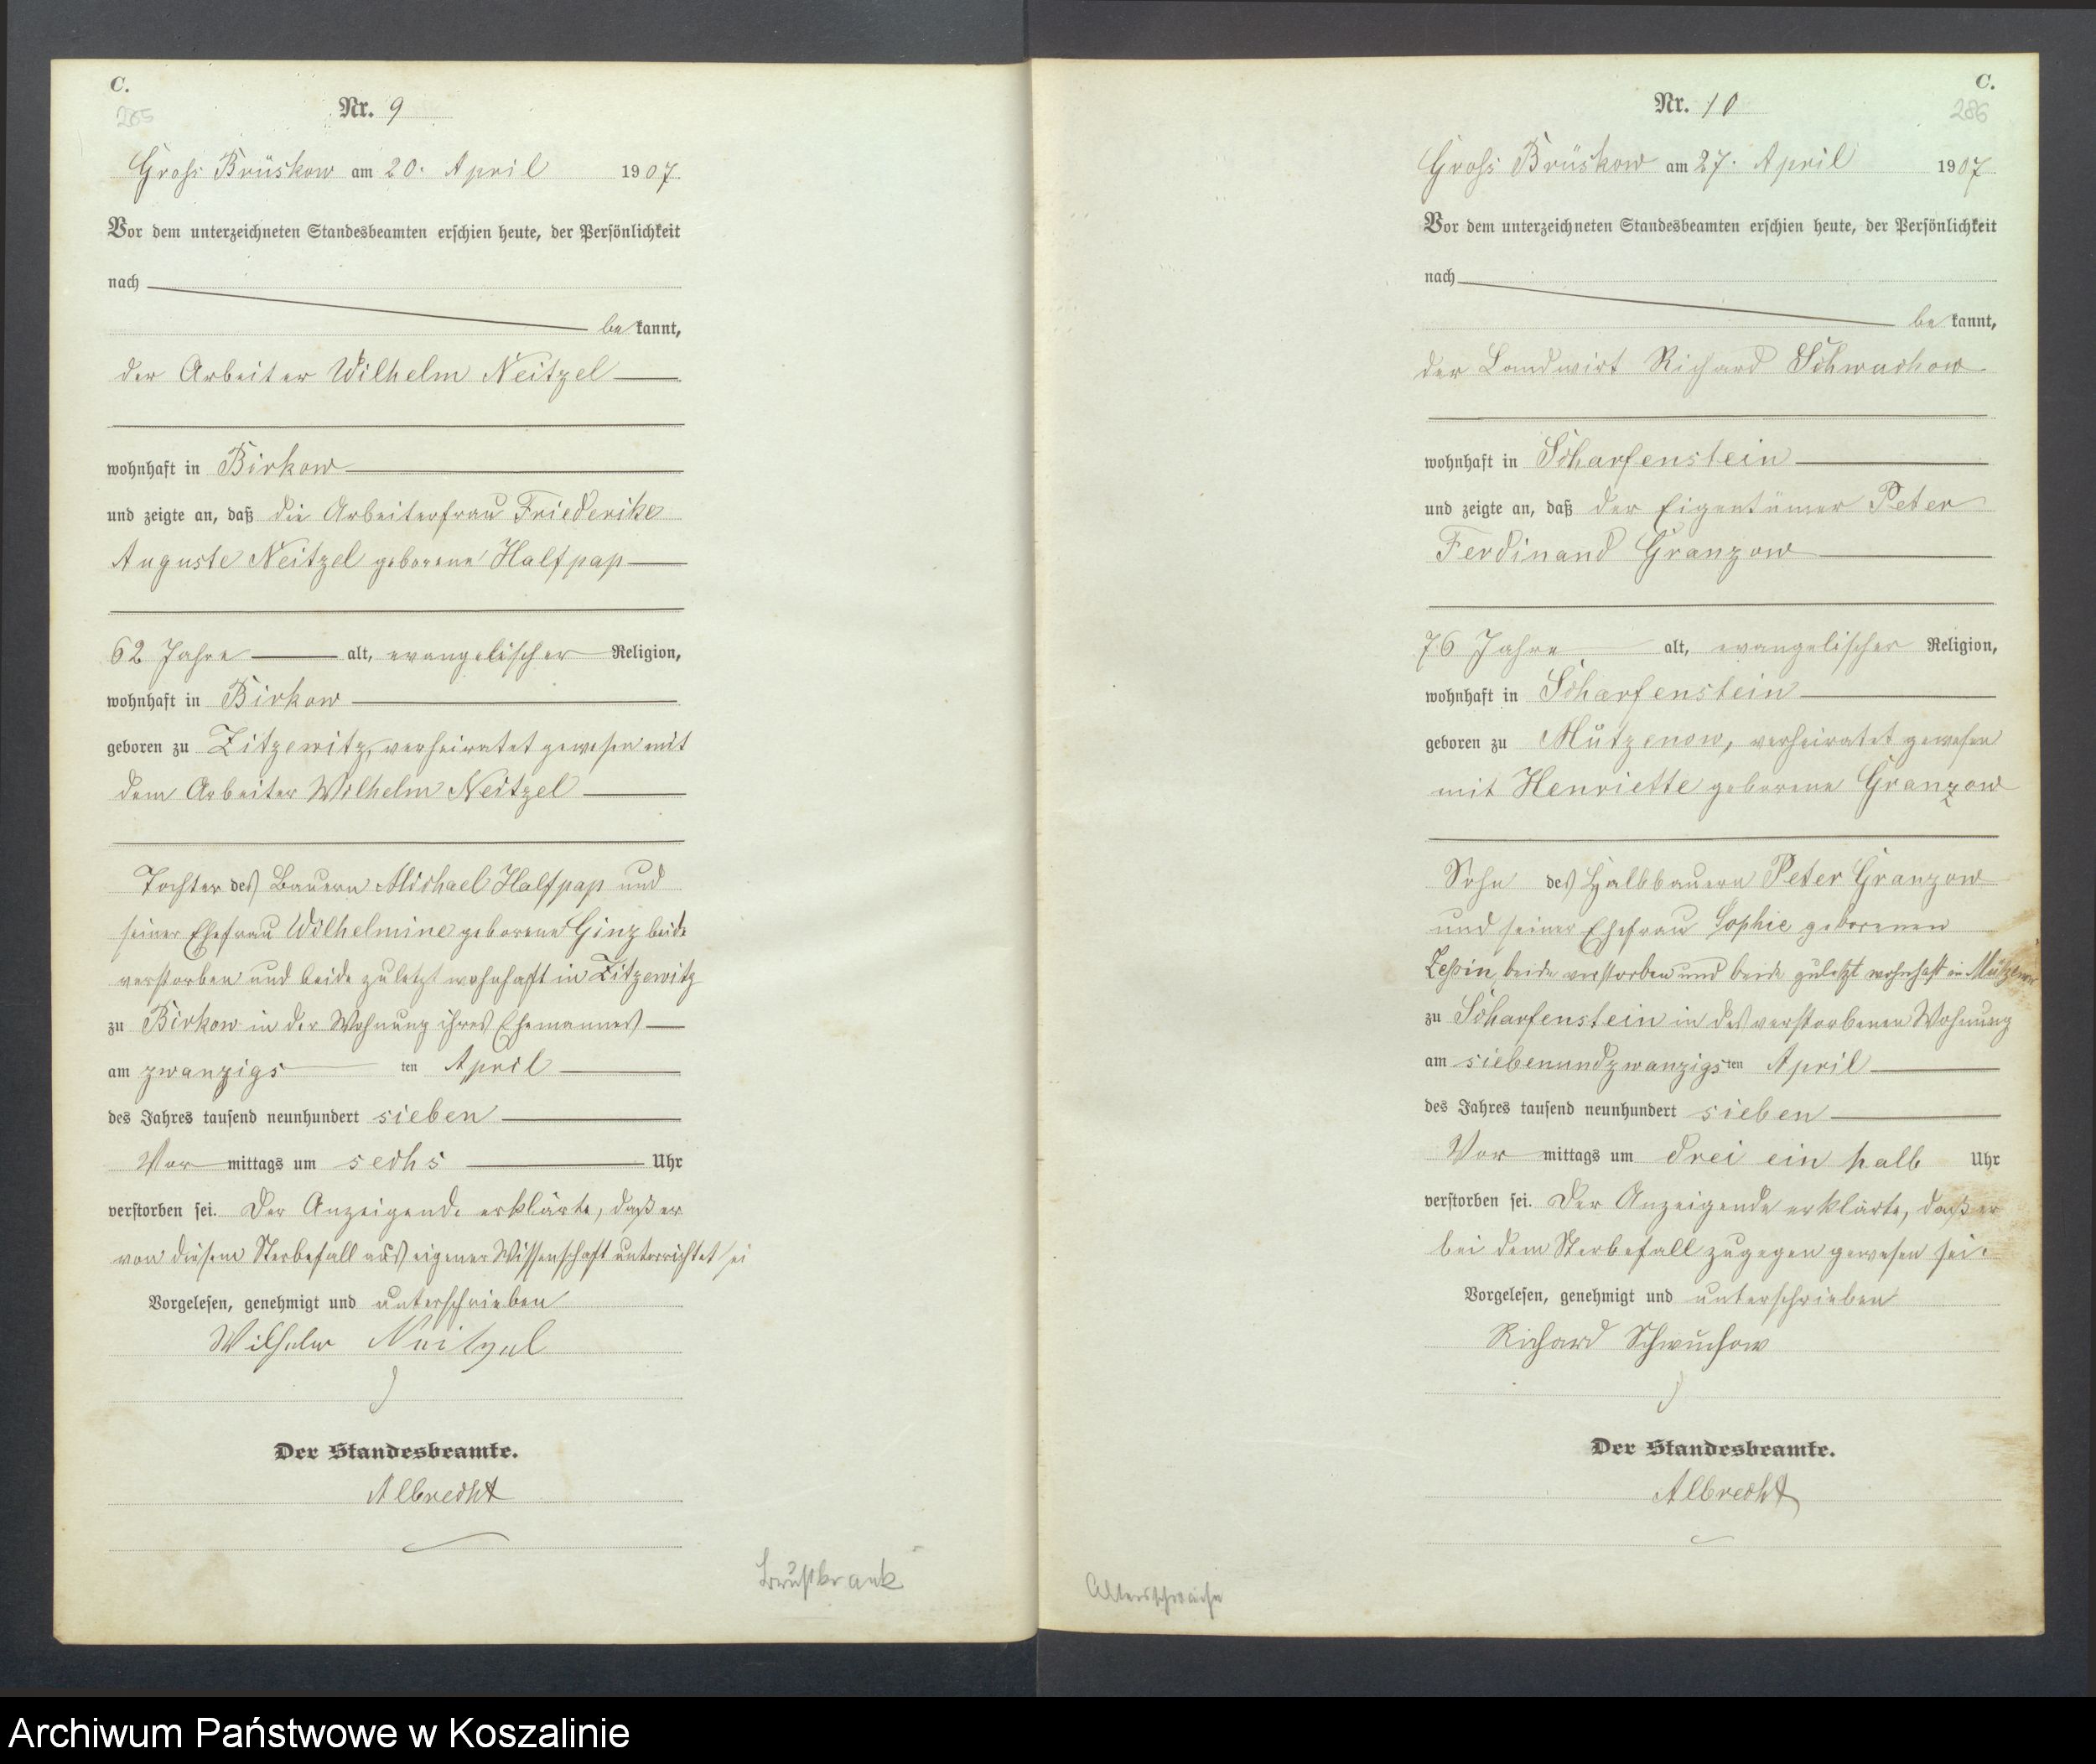 C.
265
Nr. 9
Groß Brüskow am 20. April 1907
Vor dem unterzeichneten Standesbeamten erschien heute, der Persönlichkeit
nach
be kannt,
der Arbeiter Wilhelm Neitzel
wohnhaft in Birkow
und zeigte an, daß die Arbeiterfrau Friederike
Auguste Neitzel geborene Halfpap
62 Jahre alt, evangelischer Religion,
wohnhaft in Birkow
geboren zu Zitzewitz, verheiratet gewesen mit
dem Arbeiter Wilhelm Neitzel
Tochter des Bauern Michael Halfpap und
seiner Ehefrau Wilhelmine geborene Ginz beide
verstorben und beide zuletzt wohnhaft in Zitzewitz
zu Birkow in der Wohnung ihres Ehemannes
am zwanzigs ten April
des Jahres tausend neunhundert sieben
Vor mittags um sechs Uhr
verstorben sei. Der Anzeigende erklärte, daß er
von diesem Sterbefall aus eigener Wissenschaft unterrichtet sei
Vorgelesen, genehmigt und unterschrieben
Wilhelm Neitzel
Der Standesbeamte.
Albrecht
Brustkrank
C.
286
Nr. 10
Groß Brüskow am 27. April 1907
Vor dem unterzeichneten Standesbeamten erschien heute, der Persönlichkeit
nach
be kannt,
der Landwirt Richard Schwuchow
wohnhaft in Scharfenstein
und zeigte an, daß der Eigentümer Peter
Ferdinand Granzow
76 Jahre alt, evangelischer Religion,
wohnhaft in Scharfenstein
geboren zu Mützenow, verheiratet gewesen
mit Henriette geborene Granzow
Sohn des Halbbauern Peter Granzow
und seiner Ehefrau Sophie geborenen
Zessin, beide verstorben und beide zuletzt wohnhaft in Mützenow
zu Scharfenstein in des verstorbenen Wohnung
am siebenundzwanzigs ten April
des Jahres tausend neunhundert sieben
Vor mittags um drei ein halb Uhr
verstorben sei. Der Anzeigende erklärte, daß er
bei dem Sterbefall zugegen gewesen sei.
Vorgelesen, genehmigt und unterschrieben
Richard Schwuchow
Der Standesbeamte.
Albrecht
Altersschwäche
Archiwum Państwowe w Koszalinie